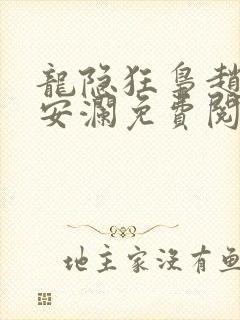 龍隐狂鳥趙
安瀾免費閱
地主家沒有魚